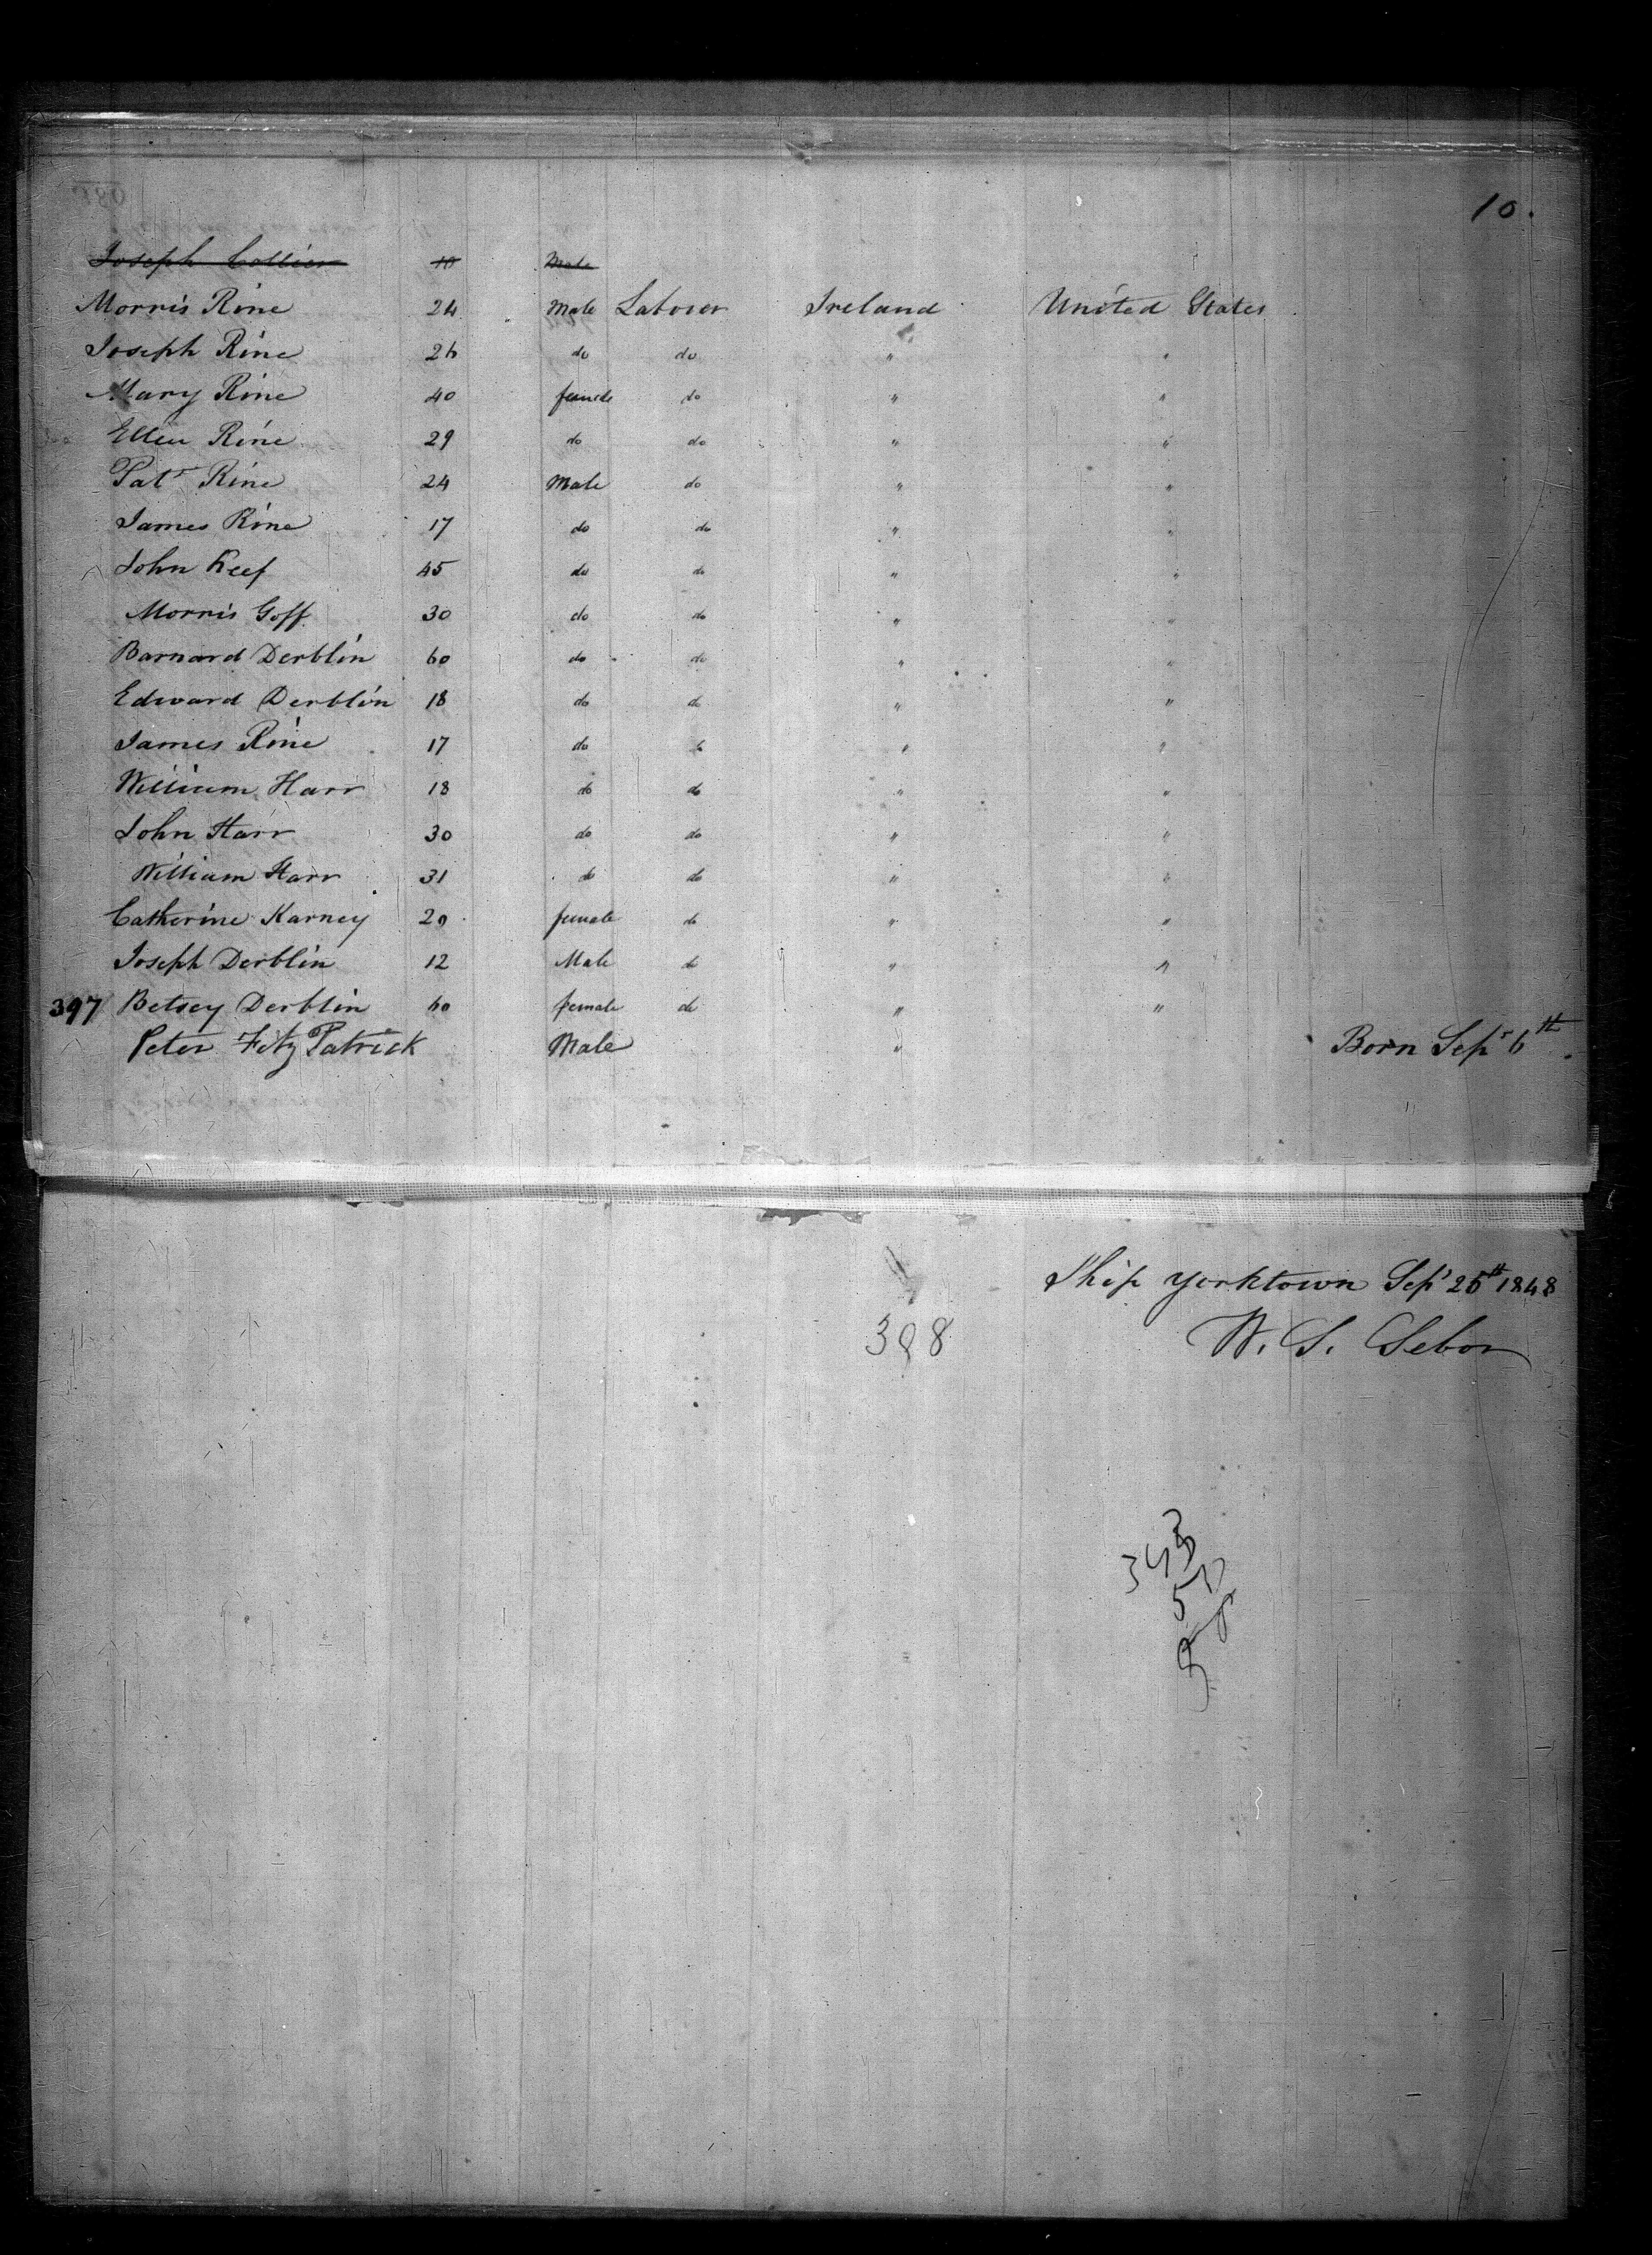 10.
Joseph Collier 18 Male
Morris Rine 24 Male Laborer Ireland United States
Joseph Rine 26 do do " "
Mary Rine 40 female do " "
Ellen Rine 29 do do " "
Patr Rine 24 Male do " "
James Rine 17 do do " "
John Keef 45 do do " "
Morris Goff 30 do do " "
Barnard Derblin 60 do do " "
Edward Derblin 18 do do " "
James Rine 17 do do " "
William Harr 18 do do " "
John Harr 30 do do " "
William Harr 31 do do " "
Catherine Karney 20 female do " "
Joseph Derblin 12 Male do " "
397 Betsey Derblin 60 female do " "
Peter Fitz Patrick Male " Born Sepr 6th
Ship Yorktown Sepr 25th 1848
398
W. S. Sebor